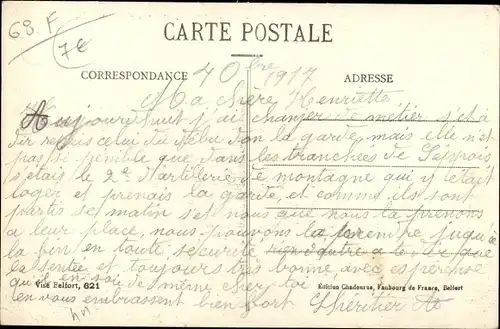 68. F
7€
CARTE POSTALE
CORRESPONDANCE
ADRESSE
1917
Ma chère Henriette
Aujourd'huit j'ai changer de métier s'et à
dir repris celui du début don la garde mais elle n'et
pas si penible que dans les tranchées de Seppois
s'etais le 2e d'artillerie de montagne qui y était
loger et prenais la garde et comme ils sont
partis se matin s'et nous que nous la prenons
a leur place, nous pouvons la prendre jusqu'à
la fin en toute sécurité rien d'autre a te dir que
la sentée et toujours très bonne avec espérense
qu'il en soie de même cher toi
en vous embrassent bien fort Lhéritier
Visé Belfort, 621
Édition Chadourne, Faubourg de France, Belfort